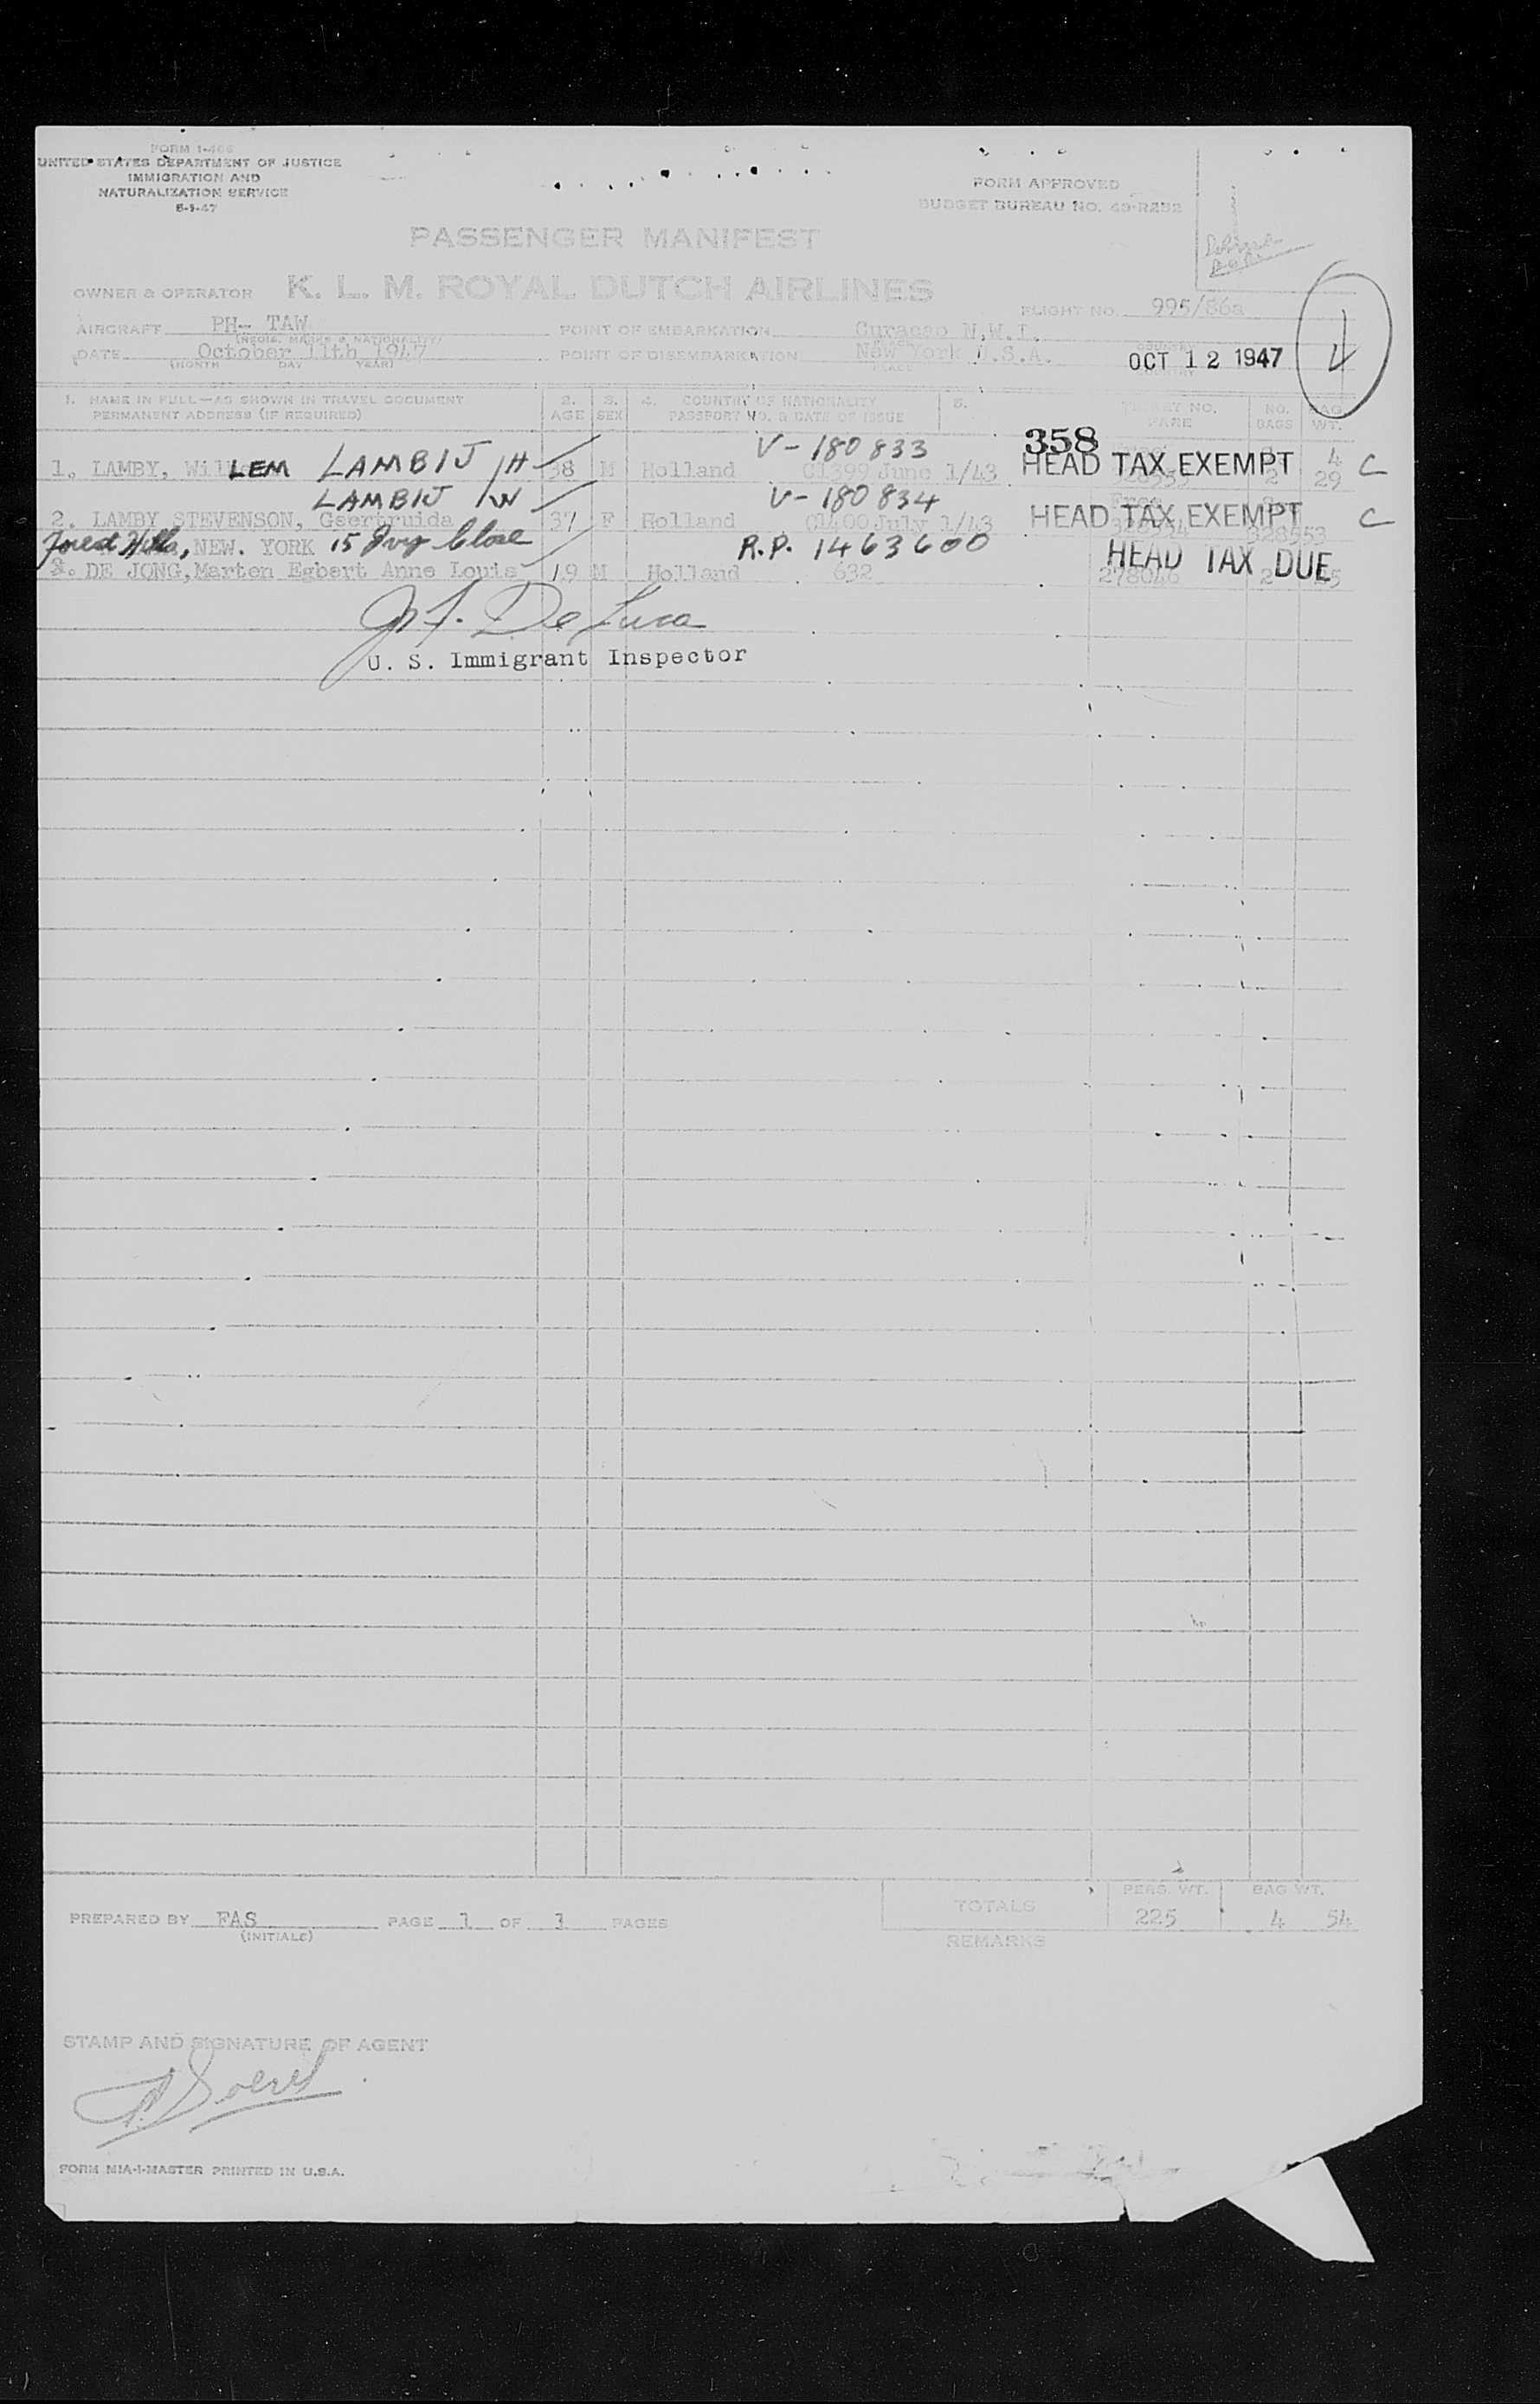 FORM I-466
UNITED STATES DEPARTMENT OF JUSTICE
IMMIGRATION AND
NATURALIZATION SERVICE
5-1-47
FORM APPROVED
BUDGET BUREAU NO. 43-R252
PASSENGER MANIFEST
OWNER & OPERATOR K. L. M. ROYAL DUTCH AIRLINES
FLIGHT NO. 995/86a
AIRCRAFT PH- TAW POINT OF EMBARKATION Curacao N.W.I.
(REGIS. MARKS & NATIONALITY)
DATE October 11th 1947 POINT OF DISEMBARKATION New York U.S.A. OCT 12 1947
(MONTH DAY YEAR) PLACE
1. NAME IN FULL—AS SHOWN IN TRAVEL DOCUMENT 2. 3. 4. COUNTRY OF NATIONALITY 5. TICKET NO. NO. BAG
PERMANENT ADDRESS (IF REQUIRED) AGE SEX PASSPORT NO. & DATE OF ISSUE FARE BAGS WT.
V-180833 358
1. LAMBY, Wil LEM LAMBIJ /H 38 M Holland C1399 June 1/43 HEAD TAX EXEMPT 2 29 C
LAMBIJ /W V-180834 Free
2. LAMBY STEVENSON, Geertruida 37 F Holland C1400 July 1/43 HEAD TAX EXEMPT C
Forest Hills, NEW. YORK 15 Ivy Close R.P. 1463600 328553
3. DE JONG, Marten Egbert Anne Louis 19 M Holland 632 HEAD TAX DUE 278046 2 25
De Luca
U. S. Immigrant Inspector
TOTALS PERS. WT. BAG WT.
PREPARED BY FAS PAGE 1 OF 1 PAGES 225 4 54
(INITIALS) REMARKS
STAMP AND SIGNATURE OF AGENT
FORM MIA-1-MASTER PRINTED IN U.S.A.